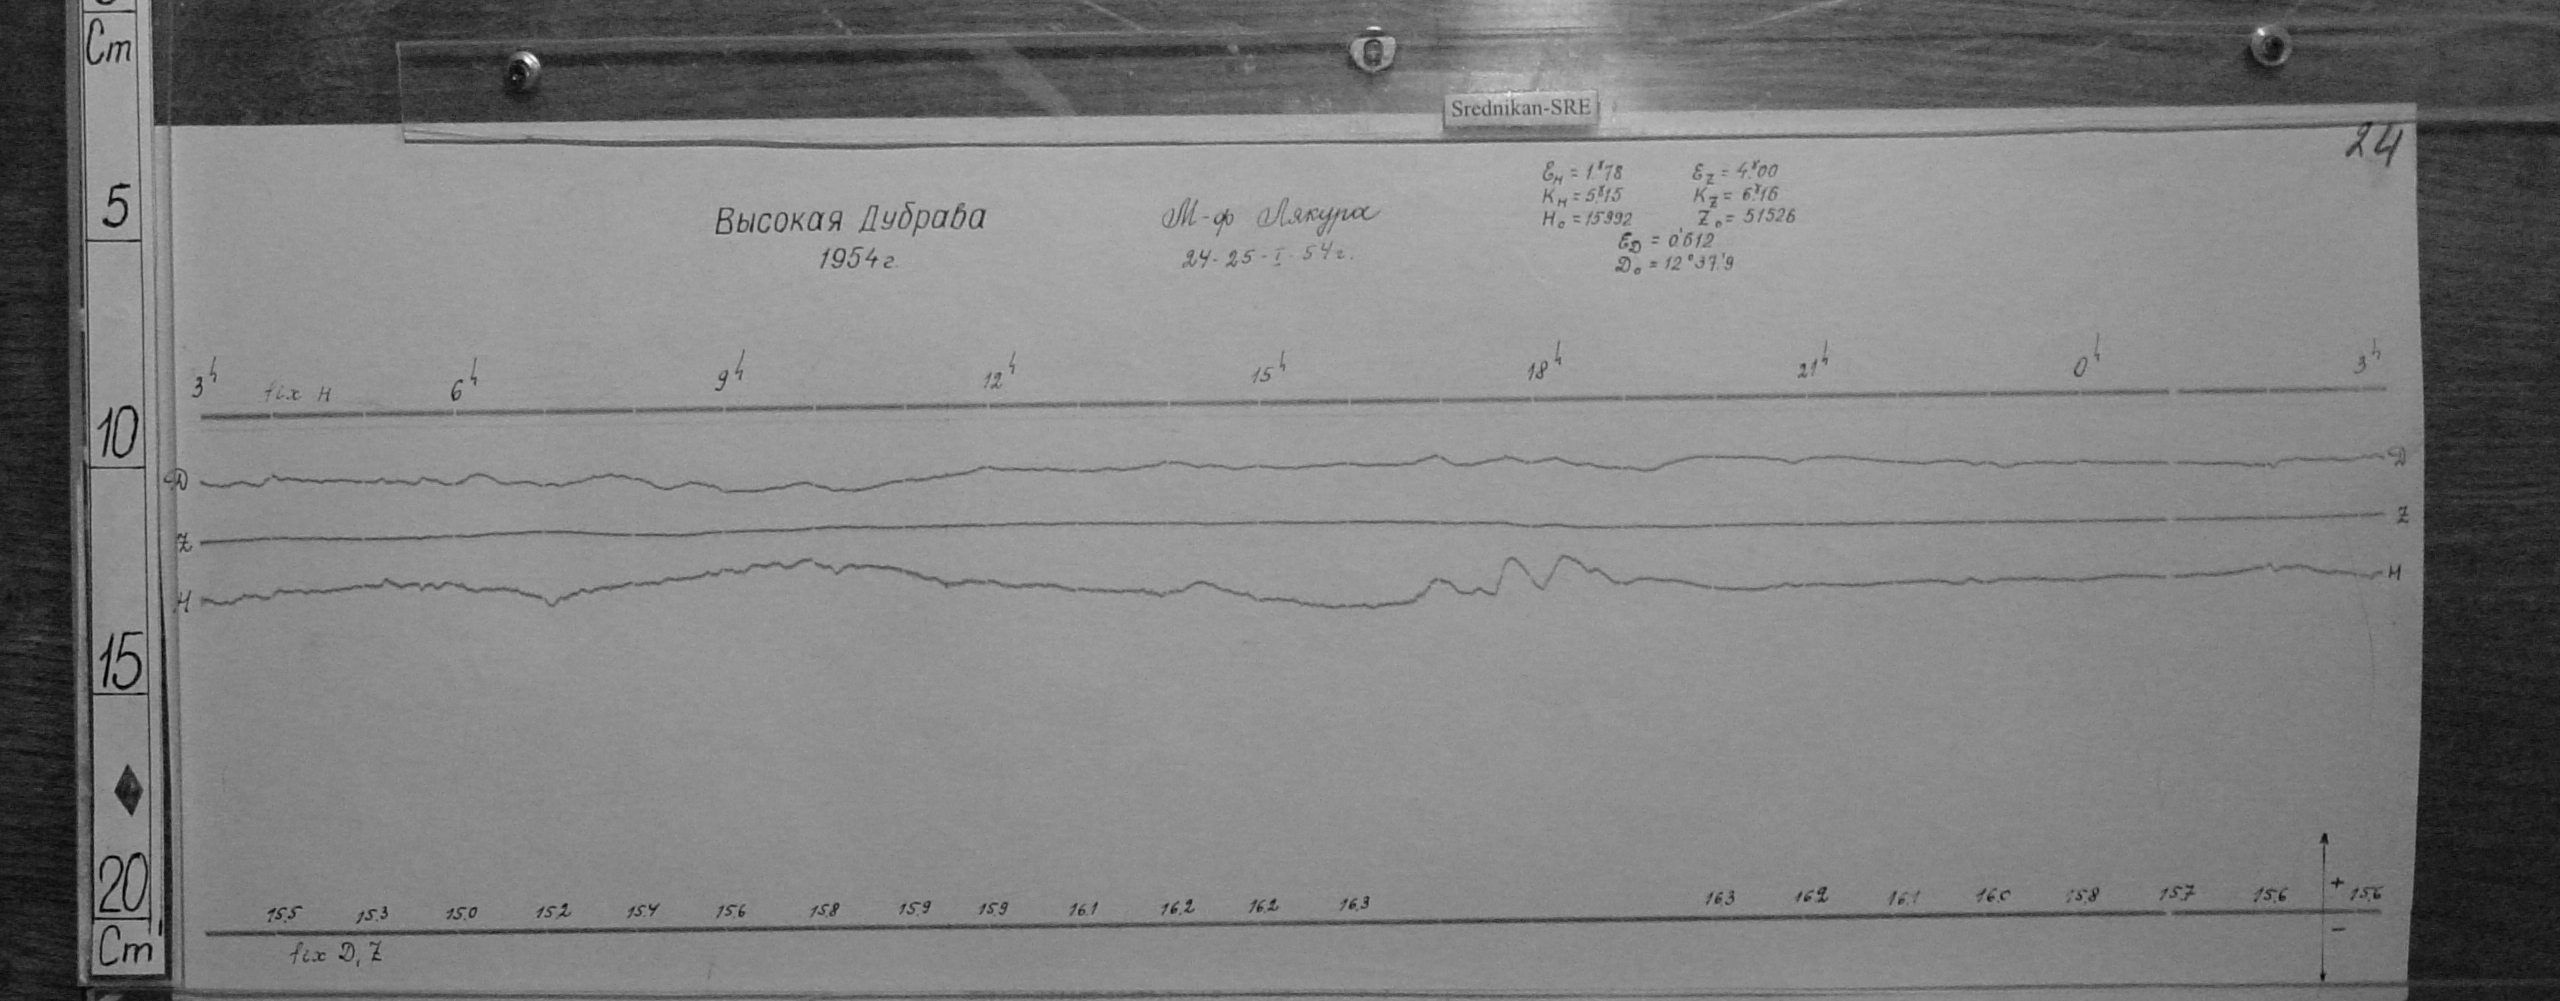 Cm
5
10
15
20
Cm
Srednikan-SRE
24
Высокая Дубрава
1954 г.
М-ф Лякура
24-25-I-54 г.
Ɛн = 1.ˣ78 Ɛz = 4.ˣ00
Kн = 5.ˣ15 Kz = 6.ˣ16
H₀ = 15992 Z₀ = 51526
ƐD = 0.'612
D₀ = 12°37.'9
3ʰ fix H 6ʰ 9ʰ 12ʰ 15ʰ 18ʰ 21ʰ 0ʰ 3ʰ
D D
Z Z
H H
15.5 15.3 15.0 15.2 15.4 15.6 15.8 15.9 15.9 16.1 16.2 16.2 16.3 16.3 16.2 16.1 16.0 15.8 15.7 15.6 + 15.6
fix D, Z −